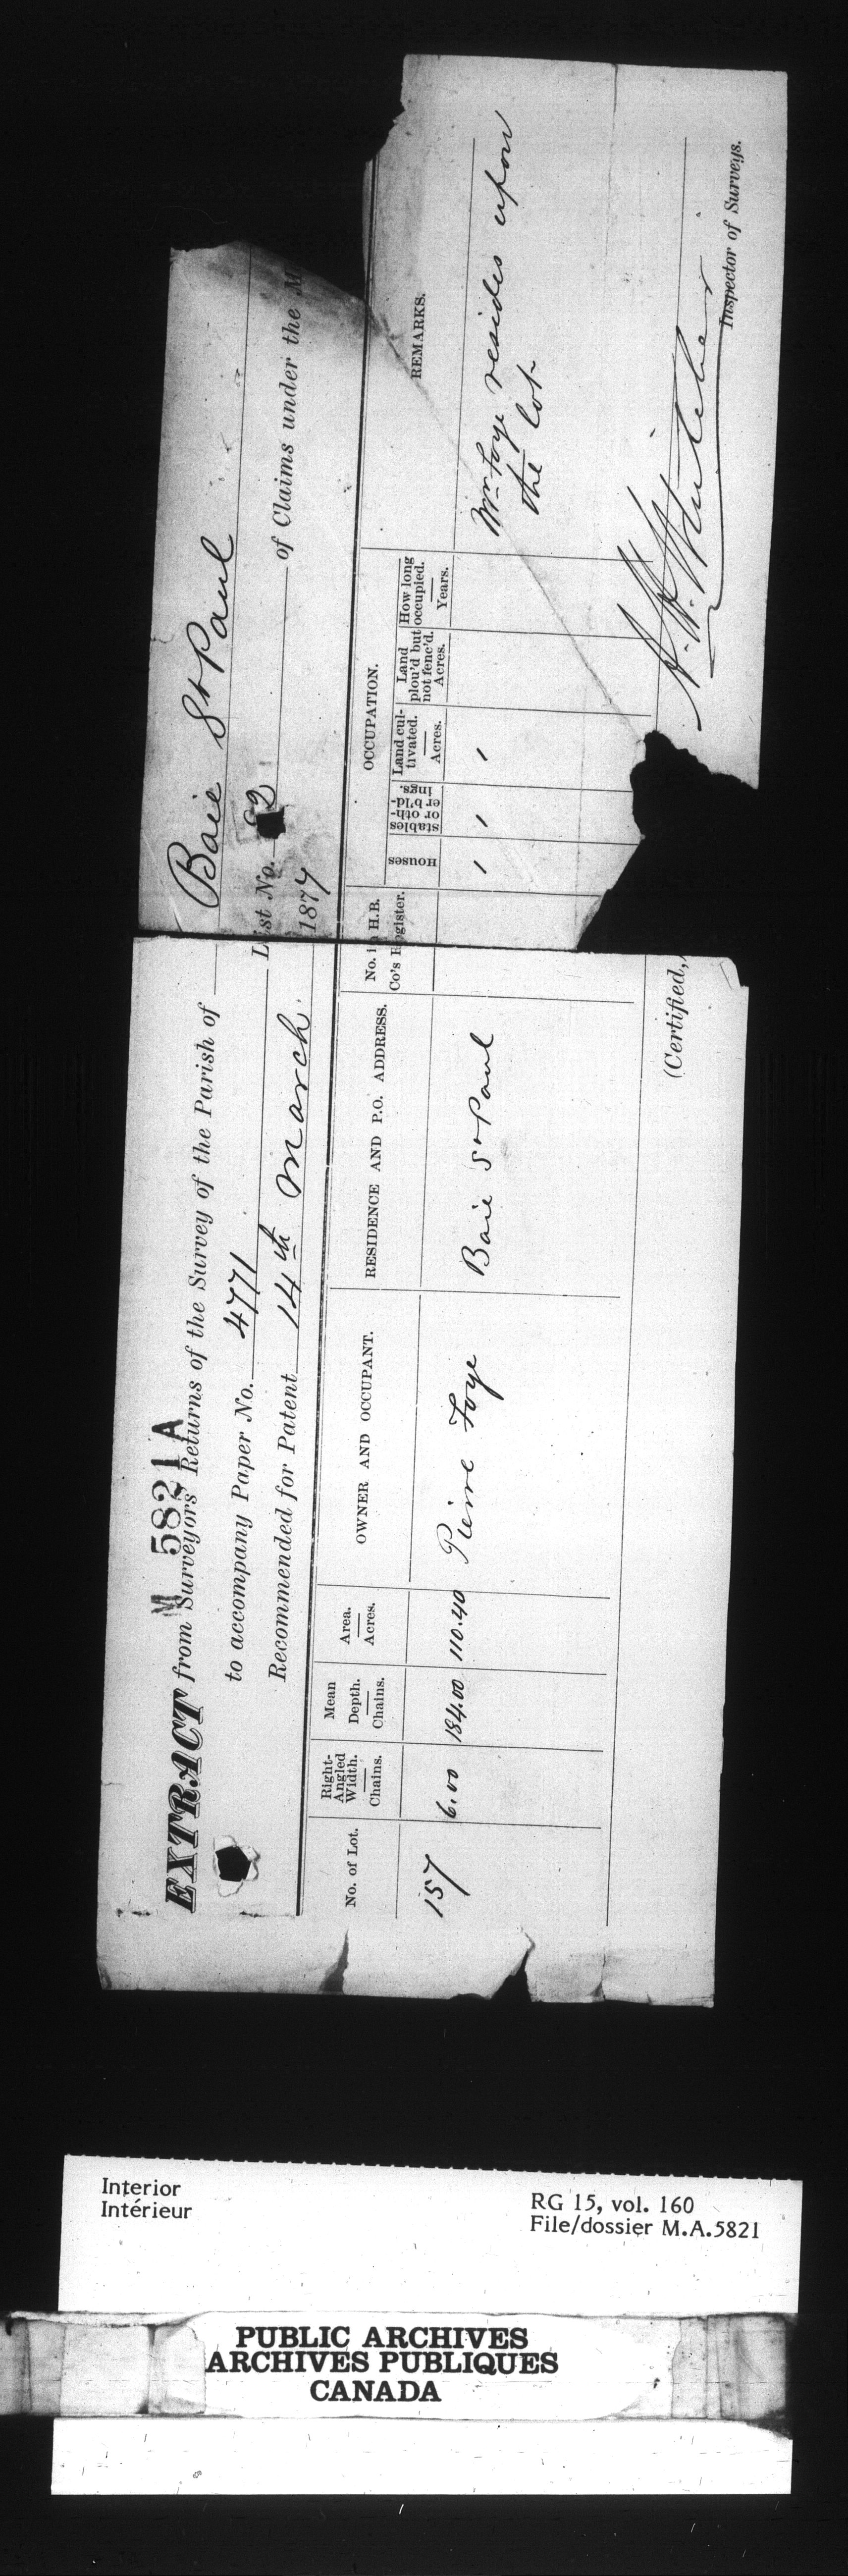 M 5821A
EXTRACT from Surveyors' Returns of the Survey of the Parish of Baie St Paul
to accompany Paper No. 4771 List No. 62 of Claims under the M
Recommended for Patent 14th March 1877
No. of Lot.
Right-Angled Width. Chains.
Mean Depth. Chains.
Area. Acres.
OWNER AND OCCUPANT.
RESIDENCE AND P.O. ADDRESS.
No. in H.B. Co's Register.
OCCUPATION.
Houses
stables or other b'ld-ings.
Land cul-tivated. Acres.
Land plou'd but not fenc'd. Acres.
How long occupied. Years.
REMARKS.
157 6.00 184.00 110.40 Pierre Foye Baie St Paul 1 1 1 Wm Foye resides upon
the lot
(Certified,)
Inspector of Surveys.
Interior
Intérieur
RG 15, vol. 160
File/dossier M.A.5821
PUBLIC ARCHIVES
ARCHIVES PUBLIQUES
CANADA